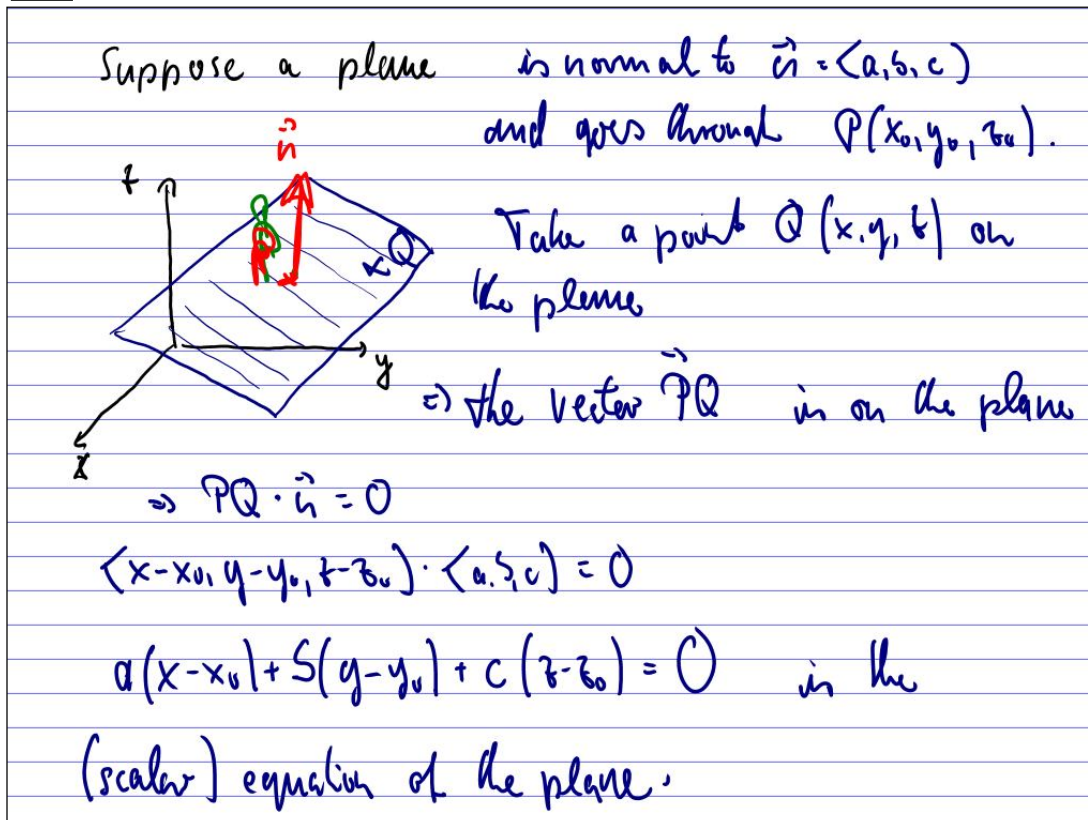 Suppose a plane is normal to n⃗ = <a, b, c>
and goes through P(x₀, y₀, z₀).
n⃗
z
Take a point Q (x, y, z) on
Q
the plane
P
y
=> the vector P⃗Q is on the plane
x
=> PQ · n⃗ = 0
<x-x₀, y-y₀, z-z₀> · <a, b, c> = 0
a(x-x₀) + b(y-y₀) + c(z-z₀) = 0 is the
(scalar) equation of the plane.